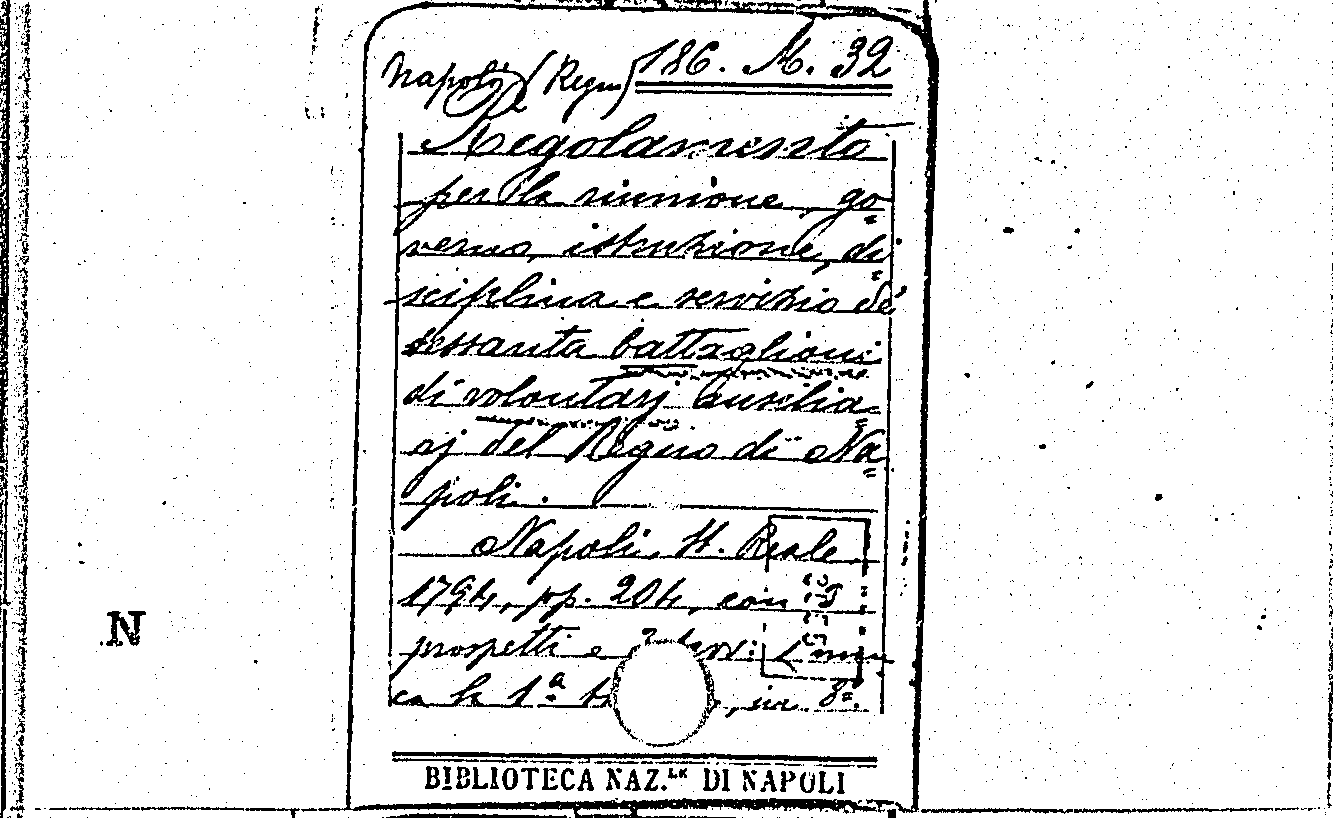 Napoli (Regno) 186. A. 32
Regolamento
per la riunione, go=
verno, istruzione, di=
sciplina e servizio de'
sessanta battaglioni
di volontarj ausilia=
rj del Regno di Na=
poli.
Napoli, St. Reale
1794, pp. 204, con
prospetti e tavv:
ca la 1ª, in 8º.
N
BIBLIOTECA NAZ.LE DI NAPOLI